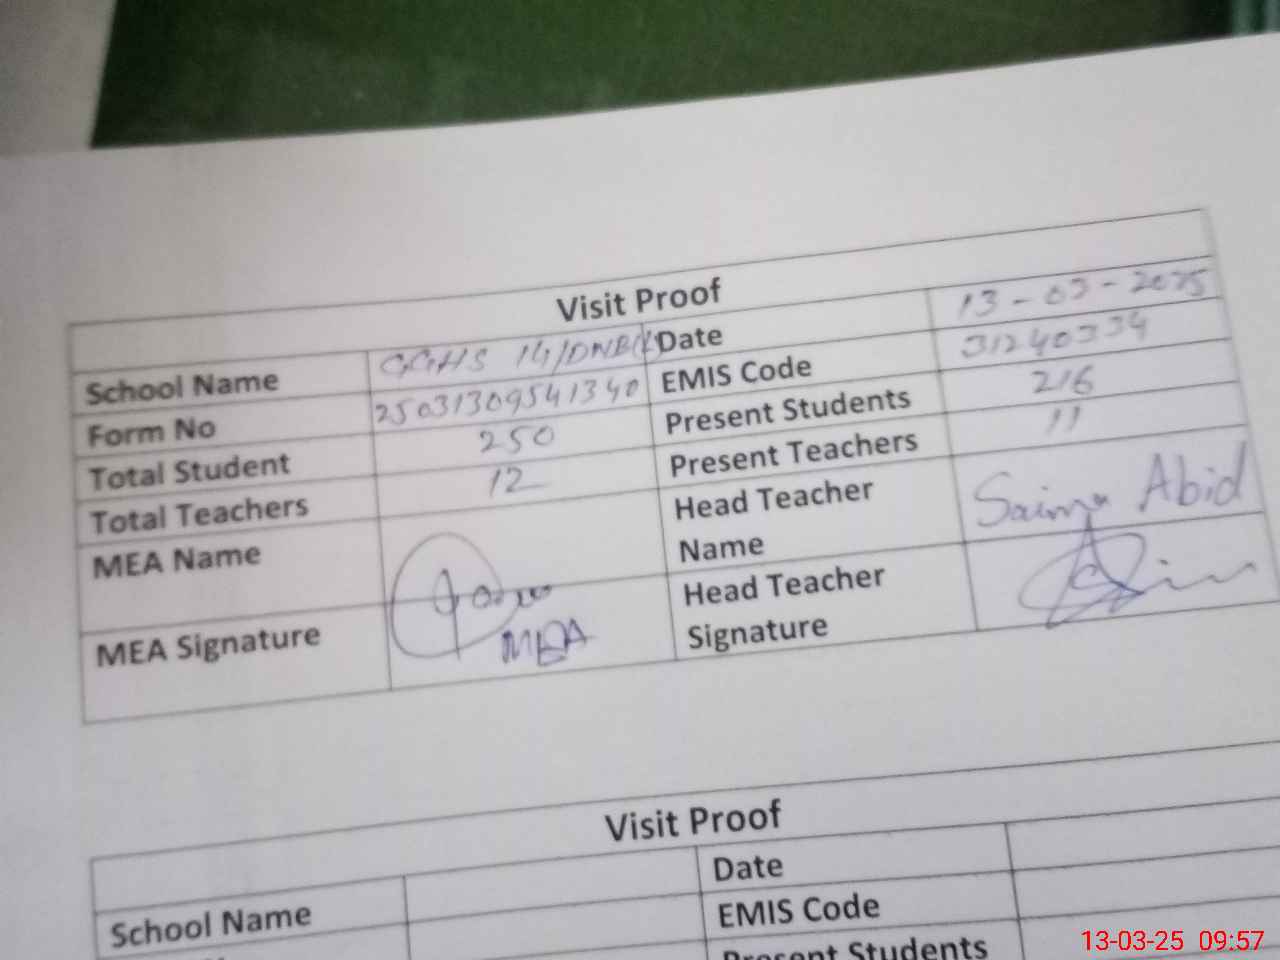 Visit Proof
School Name GGHS 14/DNB(K) Date 13-03-2025
Form No 25031309541340 EMIS Code 31240334
Total Student 250 Present Students 216
Total Teachers 12 Present Teachers 11
MEA Name Head Teacher Name Saima Abid
MEA Signature MEA Head Teacher Signature
Visit Proof
Date
School Name EMIS Code
Present Students
13-03-25 09:57